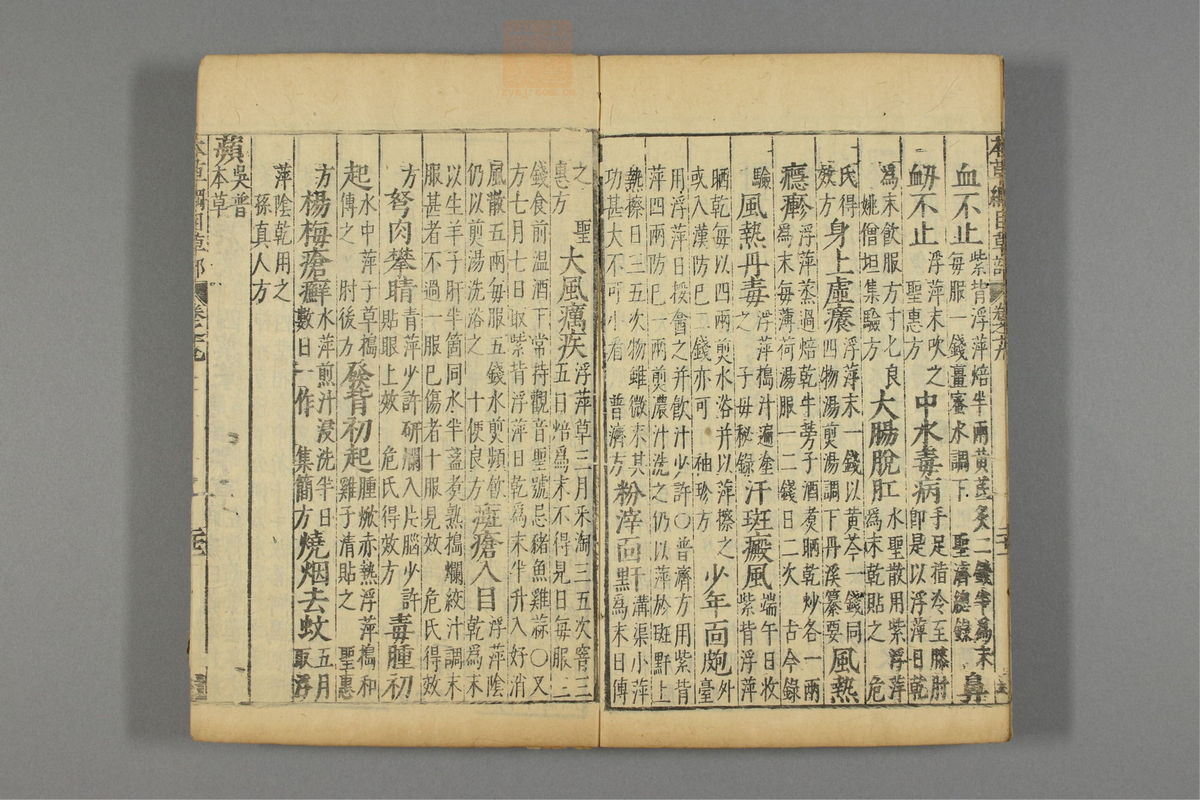 血不止紫背浮萍焙半兩黄芪炙二錢半爲末每服一錢薑蜜水調下 聖濟總錄鼻
衂不止浮萍末吹之聖惠方中水毒病手足指冷至膝肘即是以浮萍日乾
爲末飲服方寸匕良姚僧坦集驗方大腸脫肛水聖散用紫浮萍爲末乾貼之 危
氏得效方身上虛癢浮萍末一錢以黄芩一錢同四物湯煎湯調下丹溪纂要風熱
癮疹浮萍蒸過焙乾牛蒡子酒煮晒乾炒各一兩爲末每薄荷湯服一二錢日二次 古今錄
驗風熱丹毒浮萍搗汁遍塗之 子母秘錄汗斑癜風端午日收紫背浮萍
晒乾每以四兩煎水浴并以萍擦之或入漢防巳二錢亦可 袖珍方少年面皰外臺
用浮萍日挼之并飲汁少許○普濟方用紫背萍四兩防巳一兩煎濃汁洗之仍以萍於斑䵟上
熱擦日三五次物雖微末其功甚大不可小看 普濟方粉滓面䵟溝渠小萍爲末日傅
之 聖惠方大風癘疾浮萍草三月采淘三五次窨三五日焙爲末不得見日每服三
錢食前温酒下常持觀音聖號忌豬魚雞蒜○又方七月七日取紫背浮萍日乾爲末半升入好消
風散五兩每服五錢水煎頻飲仍以煎湯洗浴之 十便良方斑瘡入目浮萍陰乾爲末
以生羊子肝半箇同水半盞煮熟搗爛絞汁調末服甚者不過一服已傷者十服見效 危氏得效
方胬肉攀睛青萍少許研爛入片腦少許貼眼上效 危氏得效方毒腫初
起水中萍子草搗傅之 肘後方發背初起腫焮赤熱浮萍搗和雞子清貼之 聖惠
方楊梅瘡癬水萍煎汁浸洗半日數日一作 集簡方燒烟去蚊五月取浮
萍陰乾用之孫真人方
蘋吳普本草
本草綱目草部 卷之十九